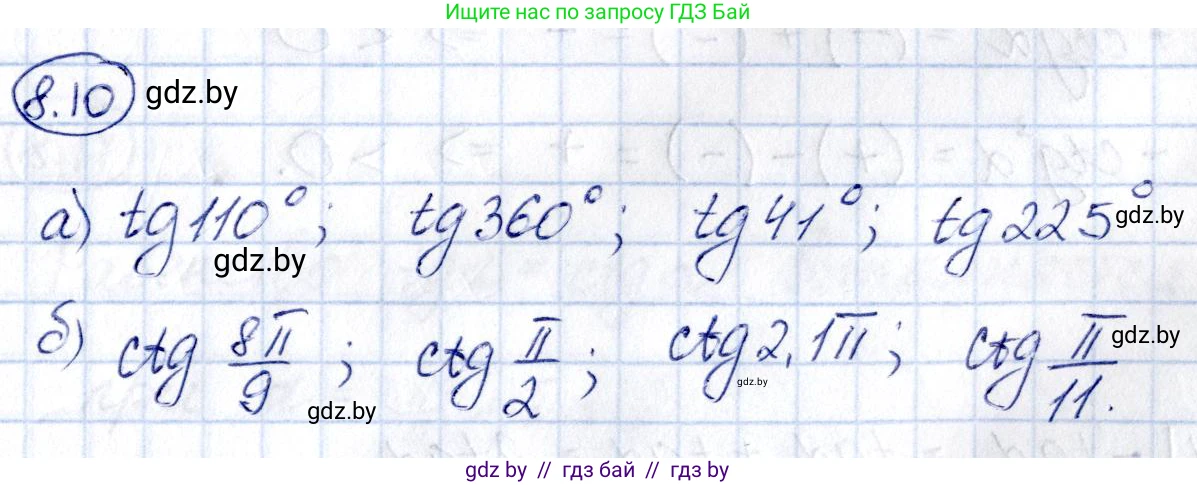 Ищите нас по запросу ГДЗ Бай
8.10 gdz.by
а) tg 110°; tg 360°; tg 41°; tg 225° gdz.by
gdz.by
б) ctg 8π/9; ctg π/2; ctg 2,1π; ctg π/11. gdz.by
gdz.by
gdz.by
gdz.by // гдз бай // гдз by